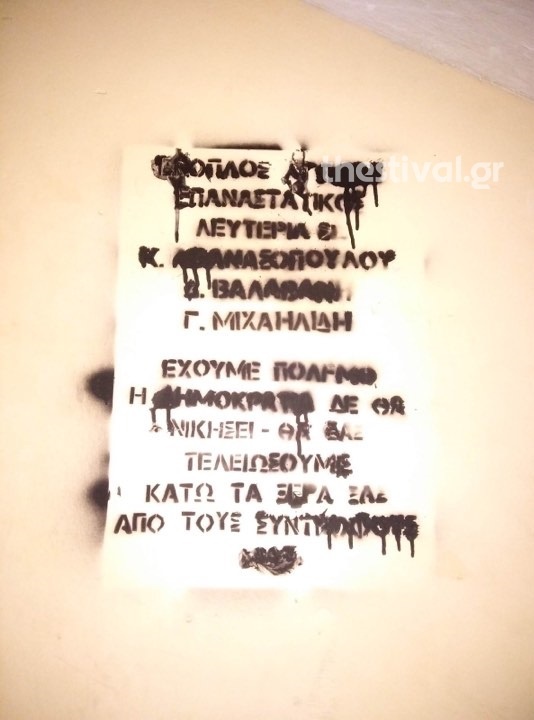 thestival.gr
ΕΝΟΠΛΟΣ
ΕΠΑΝΑΣΤΑΤΙΚΟΣ
ΛΕΥΤΕΡΙΑ
Κ. ΑΘΑΝΑΣΟΠΟΥΛΟΥ
Β. ΒΑΛΑΒΑΝΗ
Γ. ΜΙΧΑΗΛΙΔΗ
ΕΧΟΥΜΕ ΠΟΛΕΜΟ
Η ΔΗΜΟΚΡΑΤΙΑ ΔΕ ΘΑ
ΝΙΚΗΣΕΙ - ΘΑ ΣΑΣ
ΤΕΛΕΙΩΣΟΥΜΕ
ΚΑΤΩ ΤΑ ΞΕΡΑ ΣΑΣ
ΑΠΟ ΤΟΥΣ ΣΥΝΤΡΟΦΟΥΣ